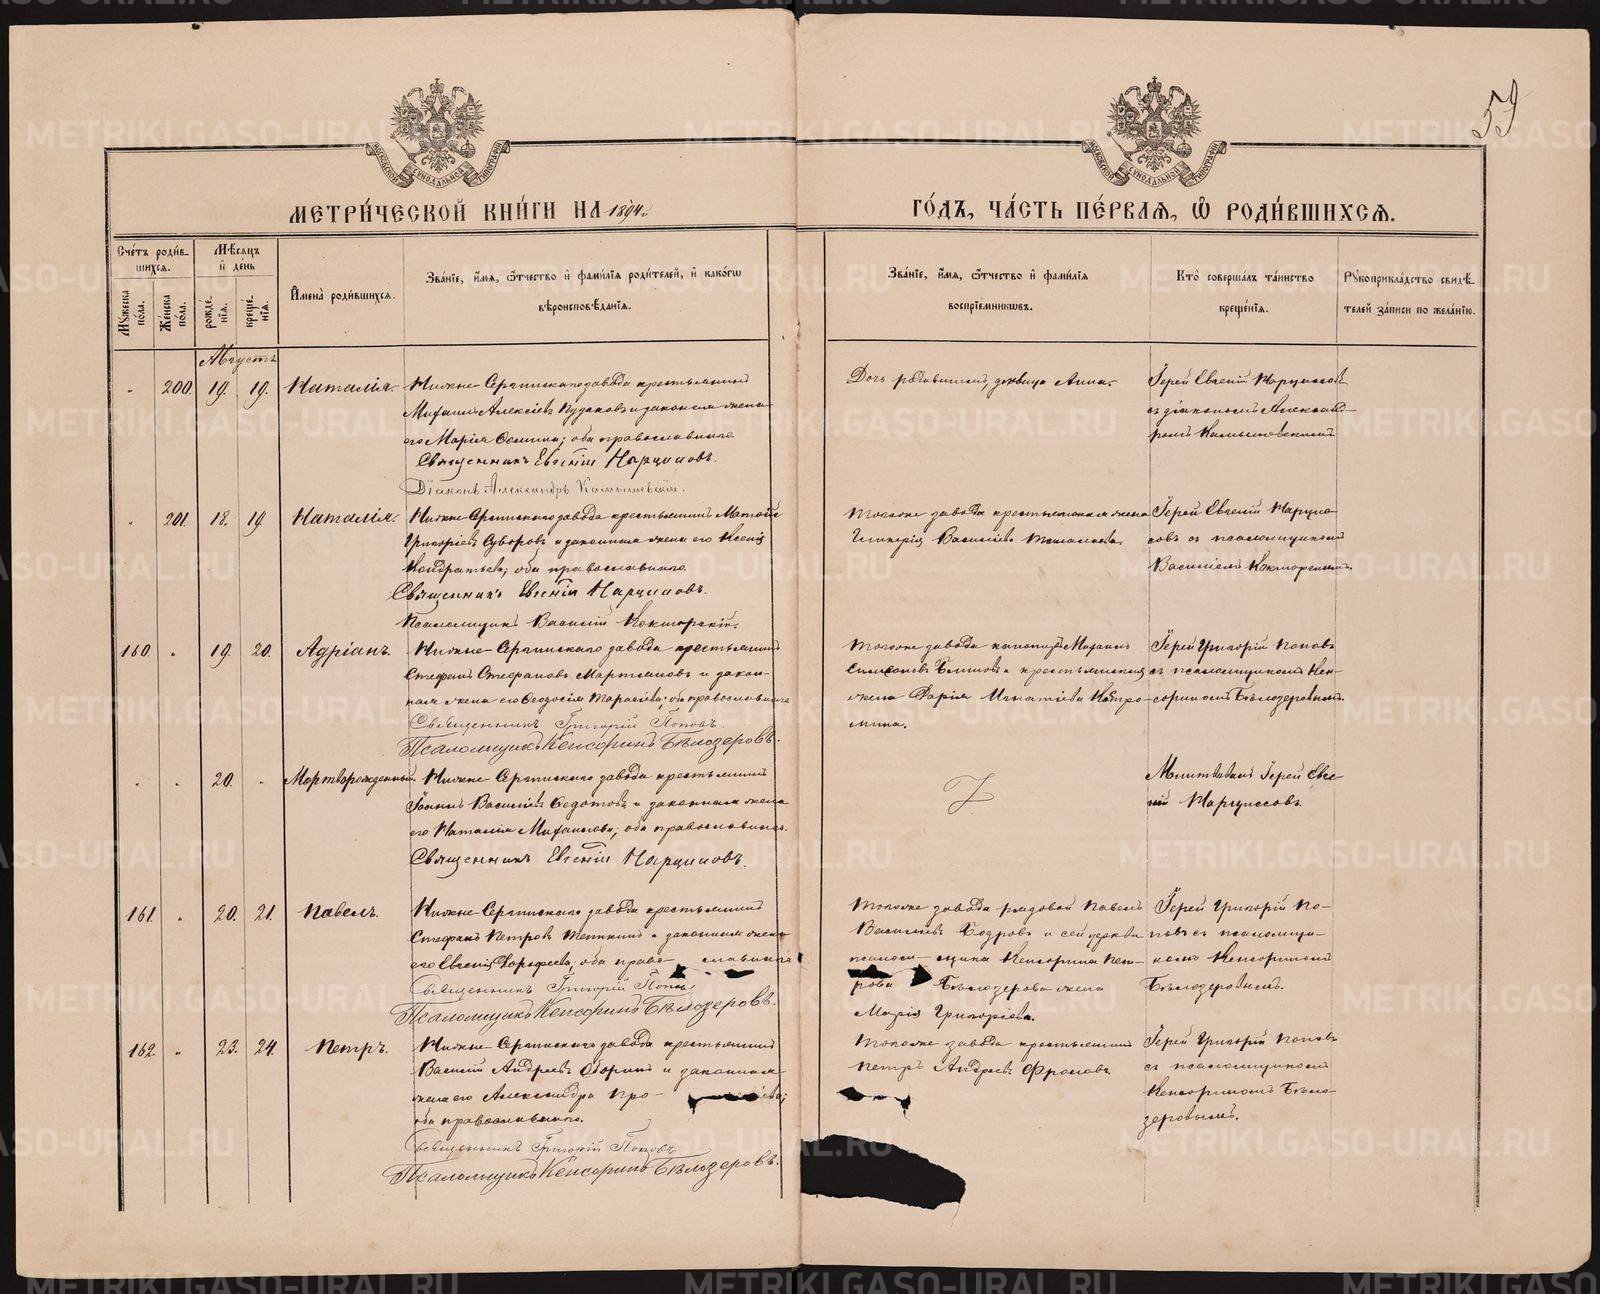 59
МЕТРИ́ЧЕСКОЙ КНИ́ГИ НА 1894 г.
ГО́ДЪ, ЧА́СТЬ ПЕ́РВАЯ, Ѡ҆ РОДИ́ВШИХСЯ.
Сче́тъ роди́вшихся.
Му́жеска по́ла.
Же́нска по́ла.
Мѣ́сяцъ и҆ де́нь
рожде́нїя.
креще́нїя.
И҆мена̀ роди́вшихся.
Зва́нїе, и҆́мя, ѻ҆́тчество и҆ фами́лїя роди́телей, и҆ како́гѡ
вѣроисповѣ́данїя.
Зва́нїе, и҆́мя, ѻ҆́тчество и҆ фами́лїя
воспрїе́мникѡвъ.
Кто̀ соверша́лъ та́инство
креще́нїя.
Рꙋкоприкла́дство свидѣ́-
телей за́писи по жела́нїю.
Августъ
200. 19. 19. Наталія.
Нижне-Сергинскаго завода крестьянинъ
Михаилъ Алексѣевъ и законная жена
его Марія; оба православнаго.
Священникъ Евгеній Нарциссовъ.
Діаконъ Александръ Камышевскій.
Дочь родившихъ, дѣвица Анна.
Іерей Евгеній Нарциссовъ
съ діакономъ Александ-
ромъ Камышевскимъ
201. 18. 19. Наталія.
Нижне-Сергинскаго завода крестьянинъ Матѳій
Григоріевъ Суворовъ и законная жена его Ксенія
Кондратьева; оба православнаго.
Священникъ Евгеній Нарциссовъ.
Псаломщикъ Василій Конторскій.
Тогоже завода крестьянская жена
Гликерія Васильева
Іерей Евгеній Нарцис-
совъ съ псаломщикомъ
Василіемъ Конторскимъ.
160. 19. 20. Адріанъ.
Нижне-Сергинскаго завода крестьянинъ
Стефанъ Стефановъ Мартьяновъ и закон-
ная жена его Ѳеодосія Тарасіева; оба православнаго
Священникъ Григорій Поповъ.
Псаломщикъ Кенсоринъ Бѣлозеровъ.
Тогоже завода Михаилъ
Блиновъ и крестьянская
жена Дарія Игнатіева
Іерей Григорій Поповъ
съ псаломщикомъ Кен-
сориномъ Бѣлозеровымъ.
20. Мертворожденный.
Нижне-Сергинскаго завода крестьянинъ
Іоаннъ Василіевъ Ѳедотовъ и законная жена
его Наталія Михаилова; оба православнаго.
Священникъ Евгеній Нарциссовъ.
Молитвовалъ Іерей Евге-
ній Нарциссовъ
161. 20. 21. Павелъ.
Нижне-Сергинскаго завода крестьянинъ
Стефанъ Петровъ и законная жена
его Евгенія Дорофеева, оба право- славнаго
Священникъ Григорій Поповъ
Псаломщикъ Кенсоринъ Бѣлозеровъ.
Тогоже завода рядовой Павелъ
Василіевъ Бодровъ и сей церкви
псалом- щика Кенсорина Пет-
рова Бѣлозерова жена
Марія Григоріева.
Іерей Григорій По-
повъ съ псаломщи-
комъ Кенсориномъ
Бѣлозеровымъ.
162. 23. 24. Петръ.
Нижне-Сергинскаго завода крестьянинъ
Василій Андреевъ Оборинъ и законная
жена его Александра Про-
оба православнаго.
Священникъ Григорій Поповъ.
Псаломщикъ Кенсоринъ Бѣлозеровъ.
Тогоже завода крестьянинъ
Петръ Андреевъ Фроловъ
Іерей Григорій Поповъ
съ псаломщикомъ
Кенсориномъ Бѣло-
зеровымъ.
METRIKI.GASO-URAL.RU